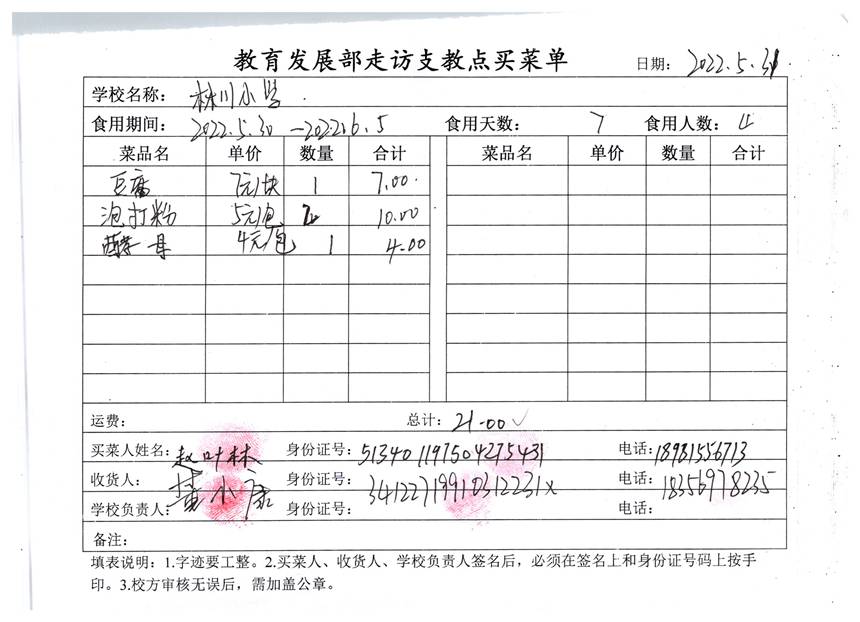 教育发展部走访支教点买菜单
日期: 2022.5.31
学校名称: 林川小学
食用期间: 2022.5.30-2022.6.5 食用天数: 7 食用人数: 4
菜品名 单价 数量 合计 菜品名 单价 数量 合计
豆腐 7元/块 1 7.00
泡打粉 5元/包 2 10.00
酵母 4元/包 1 4.00
运费: 总计: 21.00
买菜人姓名: 赵叶林 身份证号: 513401197504275431 电话: 18981556713
收货人: 黄小康 身份证号: 34122719910312231x 电话: 18356978235
学校负责人: 身份证号: 电话:
备注:
填表说明:1.字迹要工整。2.买菜人、收货人、学校负责人签名后,必须在签名上和身份证号码上按手
印。3.校方审核无误后,需加盖公章。